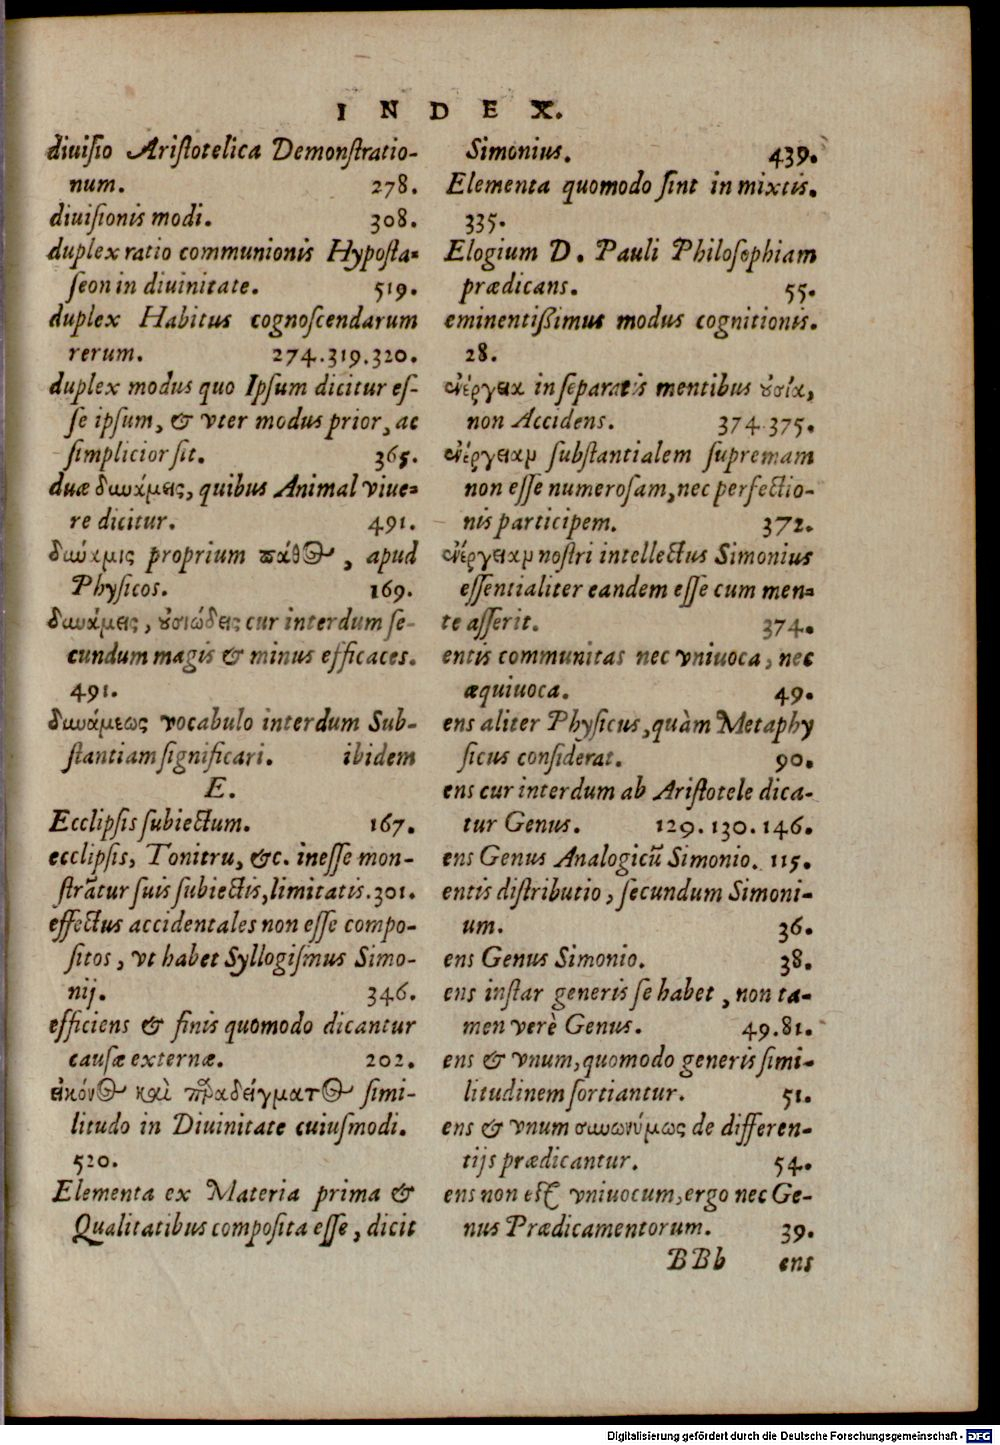 INDEX.
diuisio Aristotelica Demonstratio-
num. 278.
diuisionis modi. 308.
duplex ratio communionis Hyposta-
seon in diuinitate. 519.
duplex Habitus cognoscendarum
rerum. 274.319.320.
duplex modus quo Ipsum dicitur es-
se ipsum, & vter modus prior, ac
simplicior sit. 365.
duæ δυνάμεις, quibus Animal viue-
re dicitur. 491.
δύναμις proprium πάθος, apud
Physicos. 169.
δυνάμεις, ȣσιώδεις cur interdum se-
cundum magis & minus efficaces.
491.
δυνάμεως vocabulo interdum Sub-
stantiam significari. ibidem
E.
Ecclipsis subiectum. 167.
ecclipsis, Tonitru, &c. inesse mon-
strãtur suis subiectis, limitatis. 301.
effectus accidentales non esse compo-
sitos, vt habet Syllogismus Simo-
nij. 346.
efficiens & finis quomodo dicantur
causæ externæ. 202.
εἰκόνος καὶ παραδείγματος simi-
litudo in Diuinitate cuiusmodi.
520.
Elementa ex Materia prima &
Qualitatibus composita esse, dicit
Simonius. 439.
Elementa quomodo sint in mixtis.
335.
Elogium D. Pauli Philosophiam
prædicans. 55.
eminentißimus modus cognitionis.
28.
ἐνέργεια in separatis mentibus ȣσία,
non Accidens. 374.375.
ἐνέργειαν substantialem supremam
non esse numerosam, nec perfectio-
nis participem. 372.
ἐνέργειαν nostri intellectus Simonius
essentialiter eandem esse cum men-
te asserit. 374.
entis communitas nec vniuoca, nec
æquiuoca. 49.
ens aliter Physicus, quàm Metaphy
sicus considerat. 90.
ens cur interdum ab Aristotele dica-
tur Genus. 129.130.146.
ens Genus Analogicũ Simonio. 115.
entis distributio, secundum Simoni-
um. 36.
ens Genus Simonio. 38.
ens instar generis se habet, non ta-
men verè Genus. 49.81.
ens & vnum, quomodo generis simi-
litudinem sortiantur. 51.
ens & vnum συνωνύμως de differen-
tijs prædicantur. 54.
ens non est vniuocum, ergo nec Ge-
nus Prædicamentorum. 39.
BBb ens
Digitalisierung gefördert durch die Deutsche Forschungsgemeinschaft - DFG